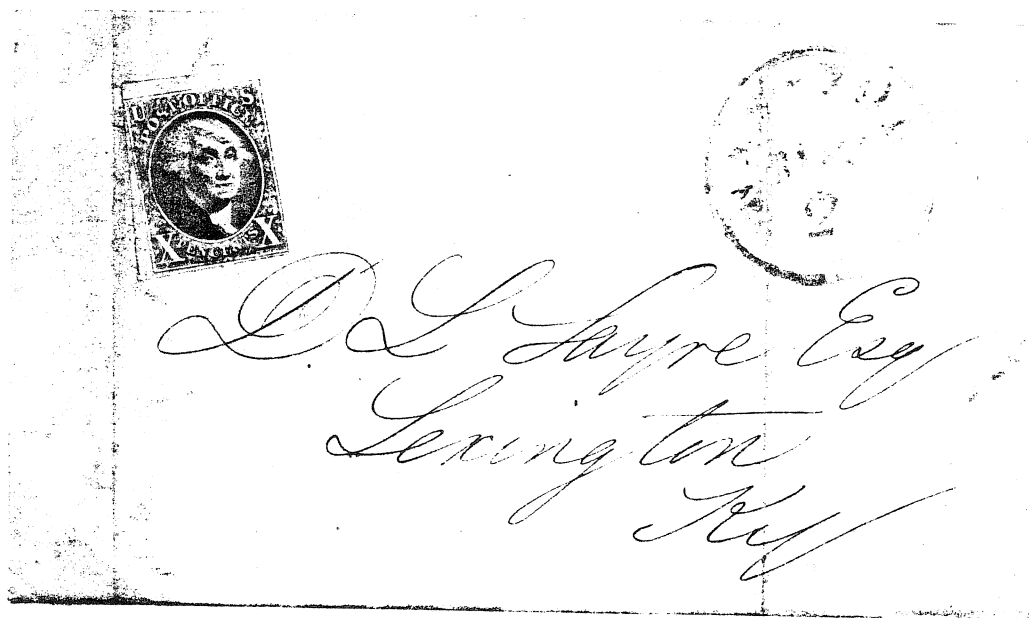 U S
POST OFFICE
X CENTS X
D L Sayre Esq
Lexington
Ky